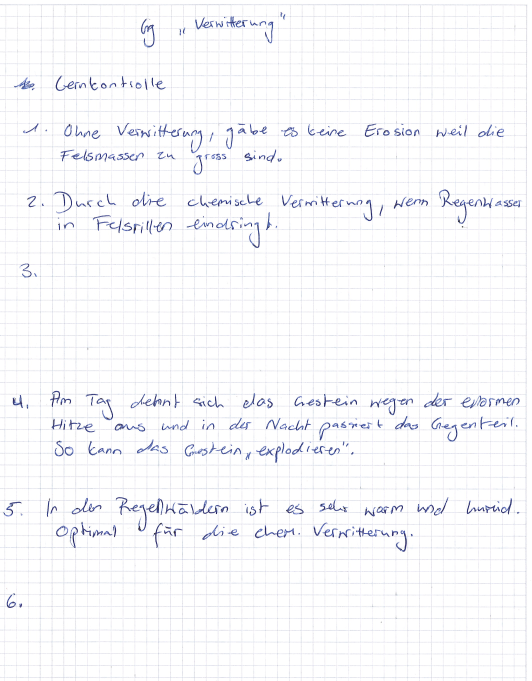 Gg „Verwitterung"
Lernkontrolle
1. Ohne Verwitterung, gäbe es keine Erosion weil die
Felsmassen zu gross sind.
2. Durch die chemische Verwitterung, wenn Regenwasser
in Felsrillen eindringt.
3.
4. Am Tag dehnt sich das Gestein wegen der enormen
Hitze aus und in der Nacht passiert das Gegenteil.
So kann das Gestein „explodieren".
5. In den Regenwäldern ist es sehr warm und humid.
Optimal für die chem. Verwitterung.
6.